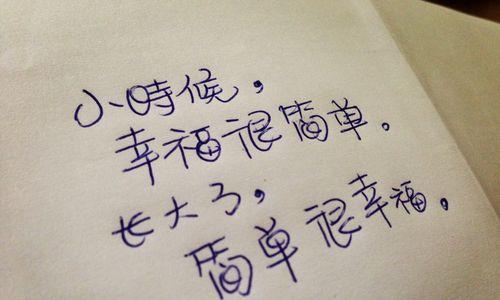 小時候，
幸福很简单。
长大了，
简单很幸福。